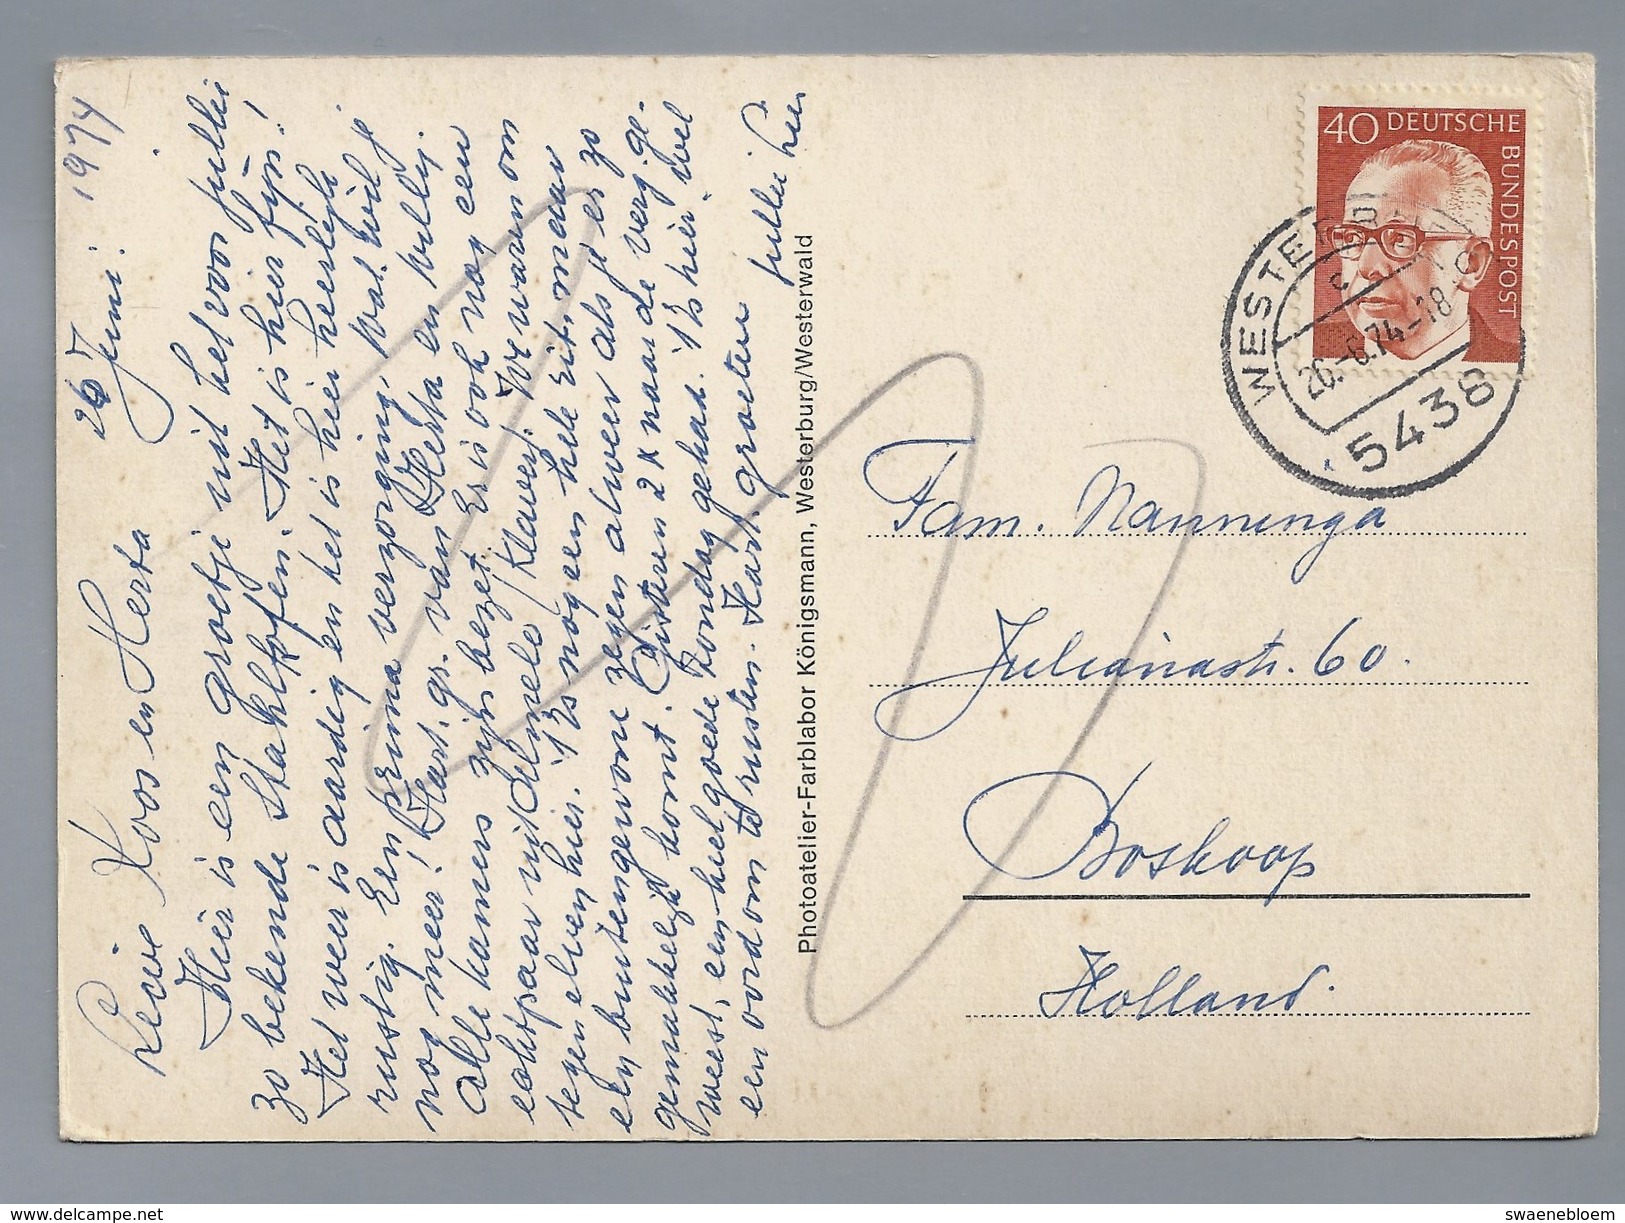 26 Juni. 1974
Lieve Koos en Herta
Hier is een groetje uit het voor jullie
zo bekende Stahlhofen. Het is hier fijn!
Het weer is aardig en het is hier heerlijk
rustig. Een prima verzorging, wat wil je
nog meer! Hart. gr. van Herta en Willy.
Alle kamers zijn bezet. Er is ook nog een
echtpaar uit Almelo (Klaver). We waren om
tegen elven hier. 't Is nog een hele rit, maar
en buitengewone zegen alweer als je er zo
gemakkelijk komt. Gisteren 2 x naar de verg. ge-
weest, een heel goede Zondag gehad. 't Is hier wel
een oord om te rusten. Hart. groeten jullie
Photoatelier-Farblabor Königsmann, Westerburg/Westerwald
40 DEUTSCHE BUNDESPOST
WESTERBURG
26.-6.74-18
5438
Fam. Nanninga
Julianastr. 60.
Boskoop
Holland.
www.delcampe.net
swaenebloem